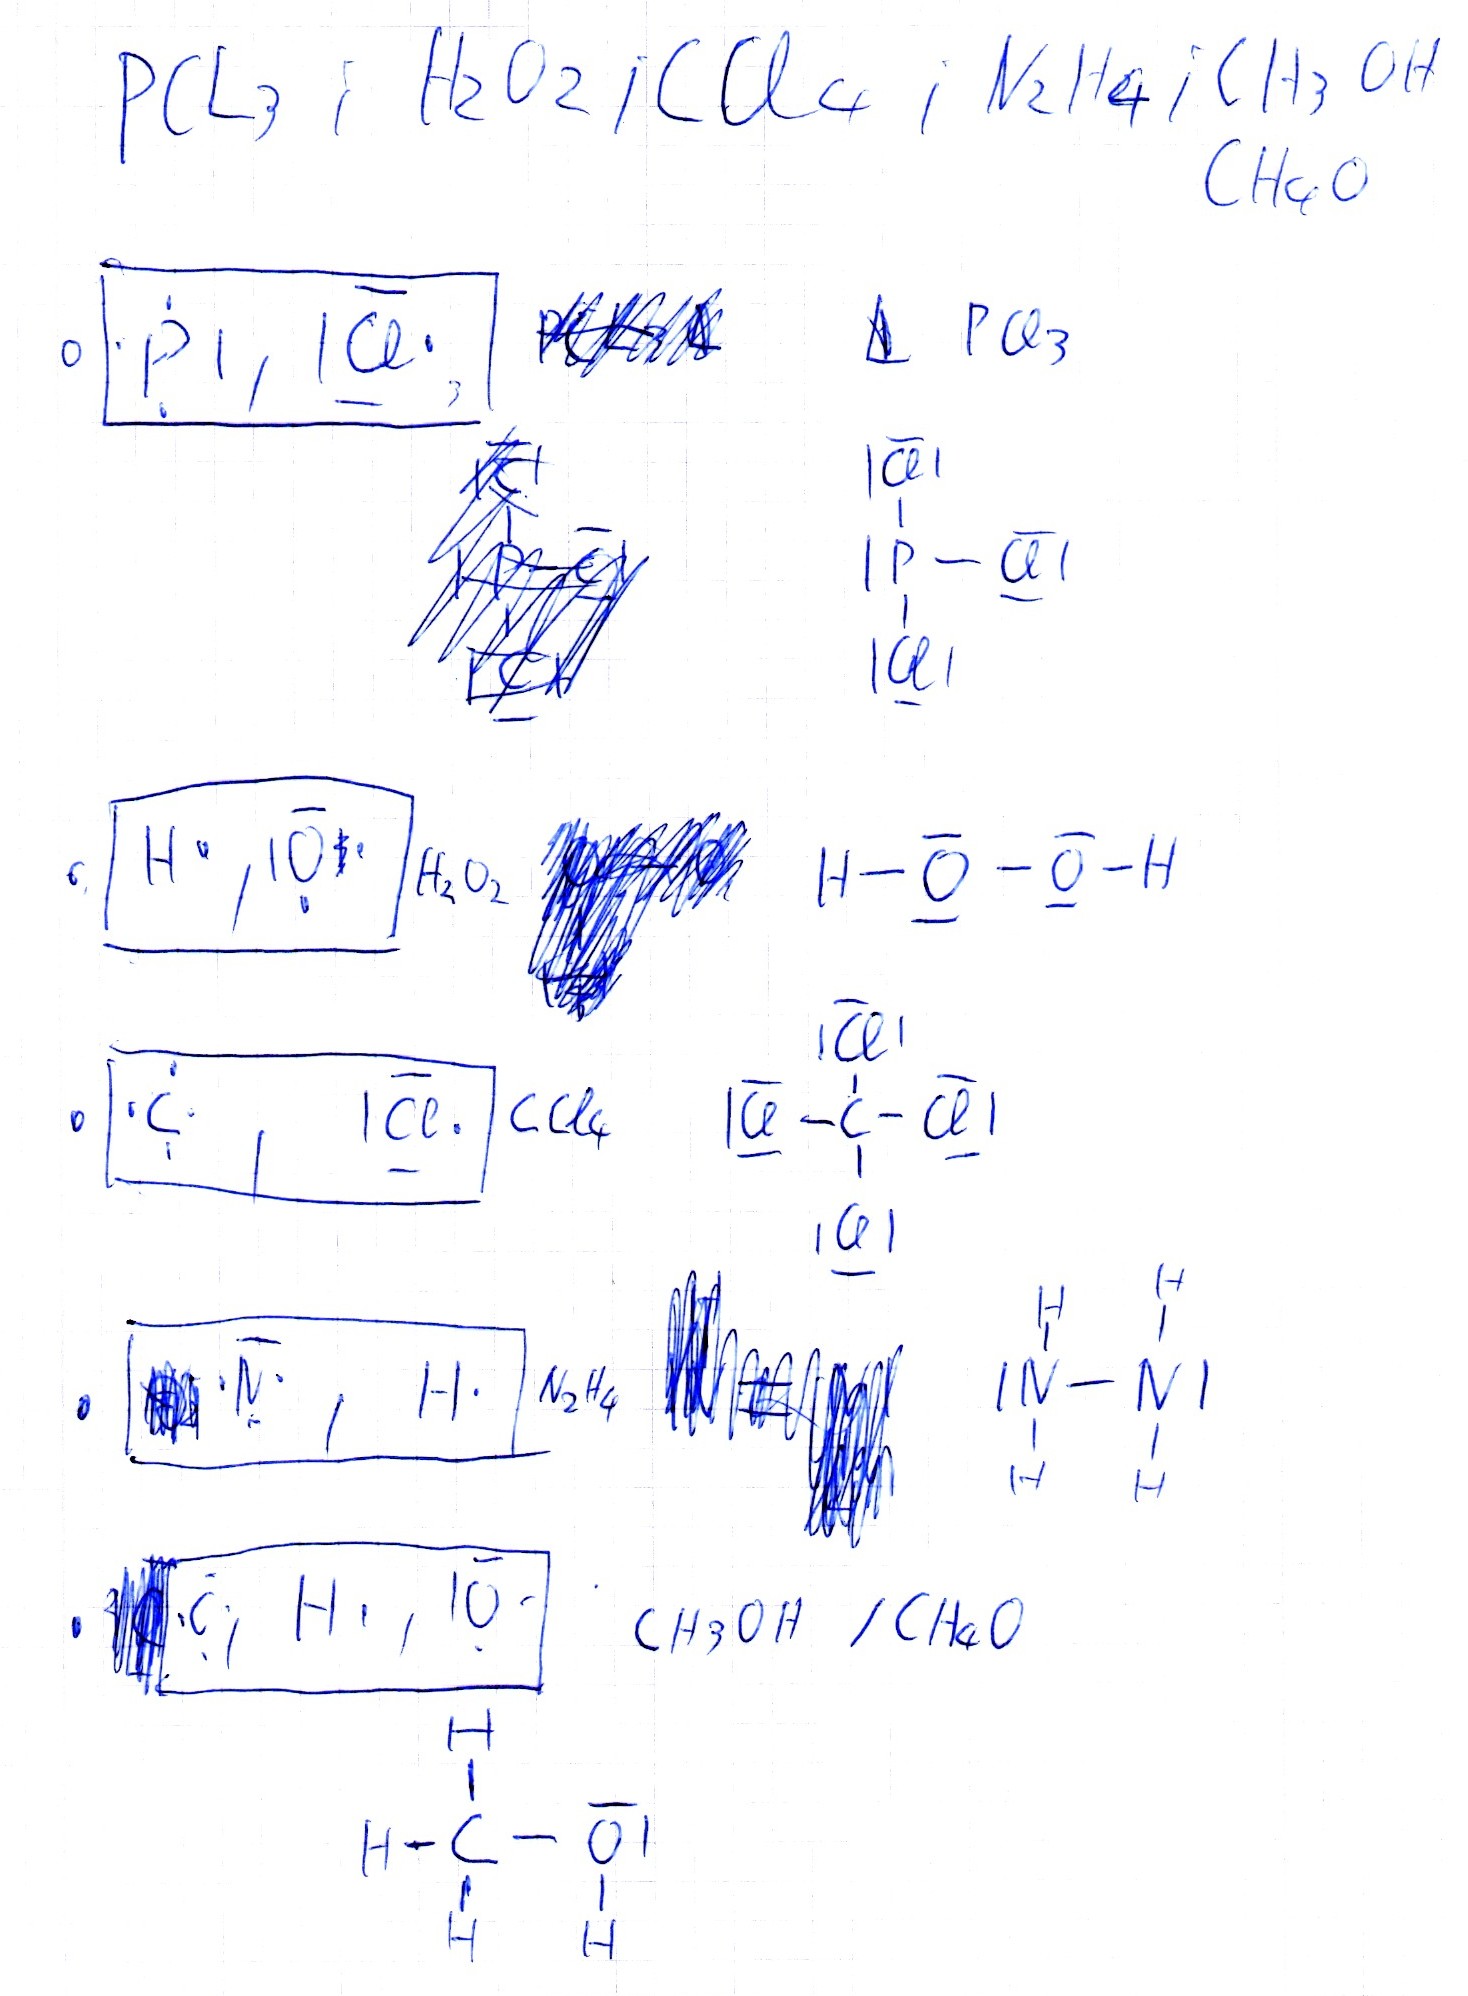 PCL3 ; H2O2 ; CCl4 ; N2H4 ; CH3OH
CH4O
P , Cl 3 PCl3
Cl
P - Cl
Cl
H , O H2O2 H - O - O - H
Cl
C , Cl CCl4 Cl - C - Cl
Cl
H H
N , H N2H4 N - N
H H
C , H , O CH3OH / CH4O
H
H - C - O
H H